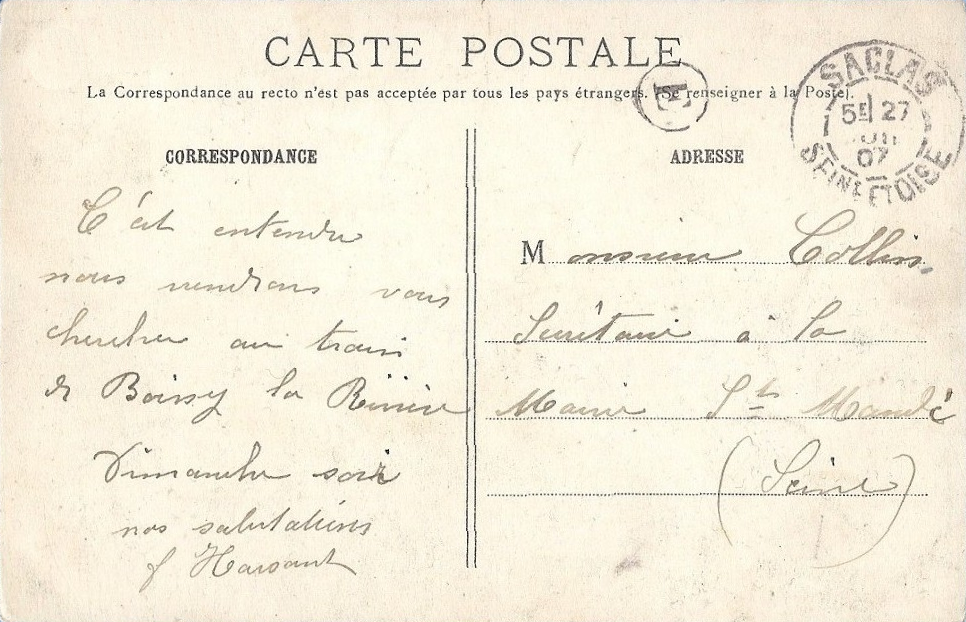 CARTE POSTALE
La Correspondance au recto n'est pas acceptée par tous les pays étrangers. (Se renseigner à la Poste).
E
SACLAS
5E 27
07
SEINE ET OISE
CORRESPONDANCE
C'est entendu
nous viendrons vous
chercher au train
de Boissy la Rivière
Dimanche soir
nos salutations
ADRESSE
Monsieur Collin
Secrétaire à la
Mairie St Mandé
(Seine)